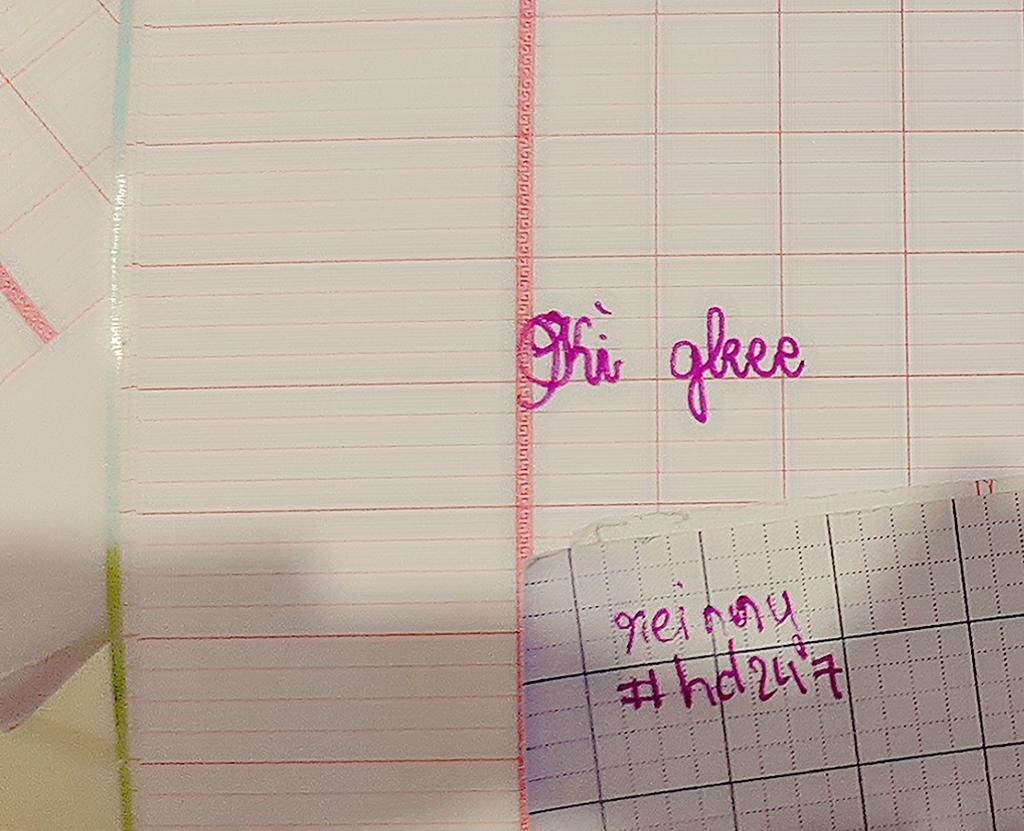 Thì gleee
reinny
#hd247